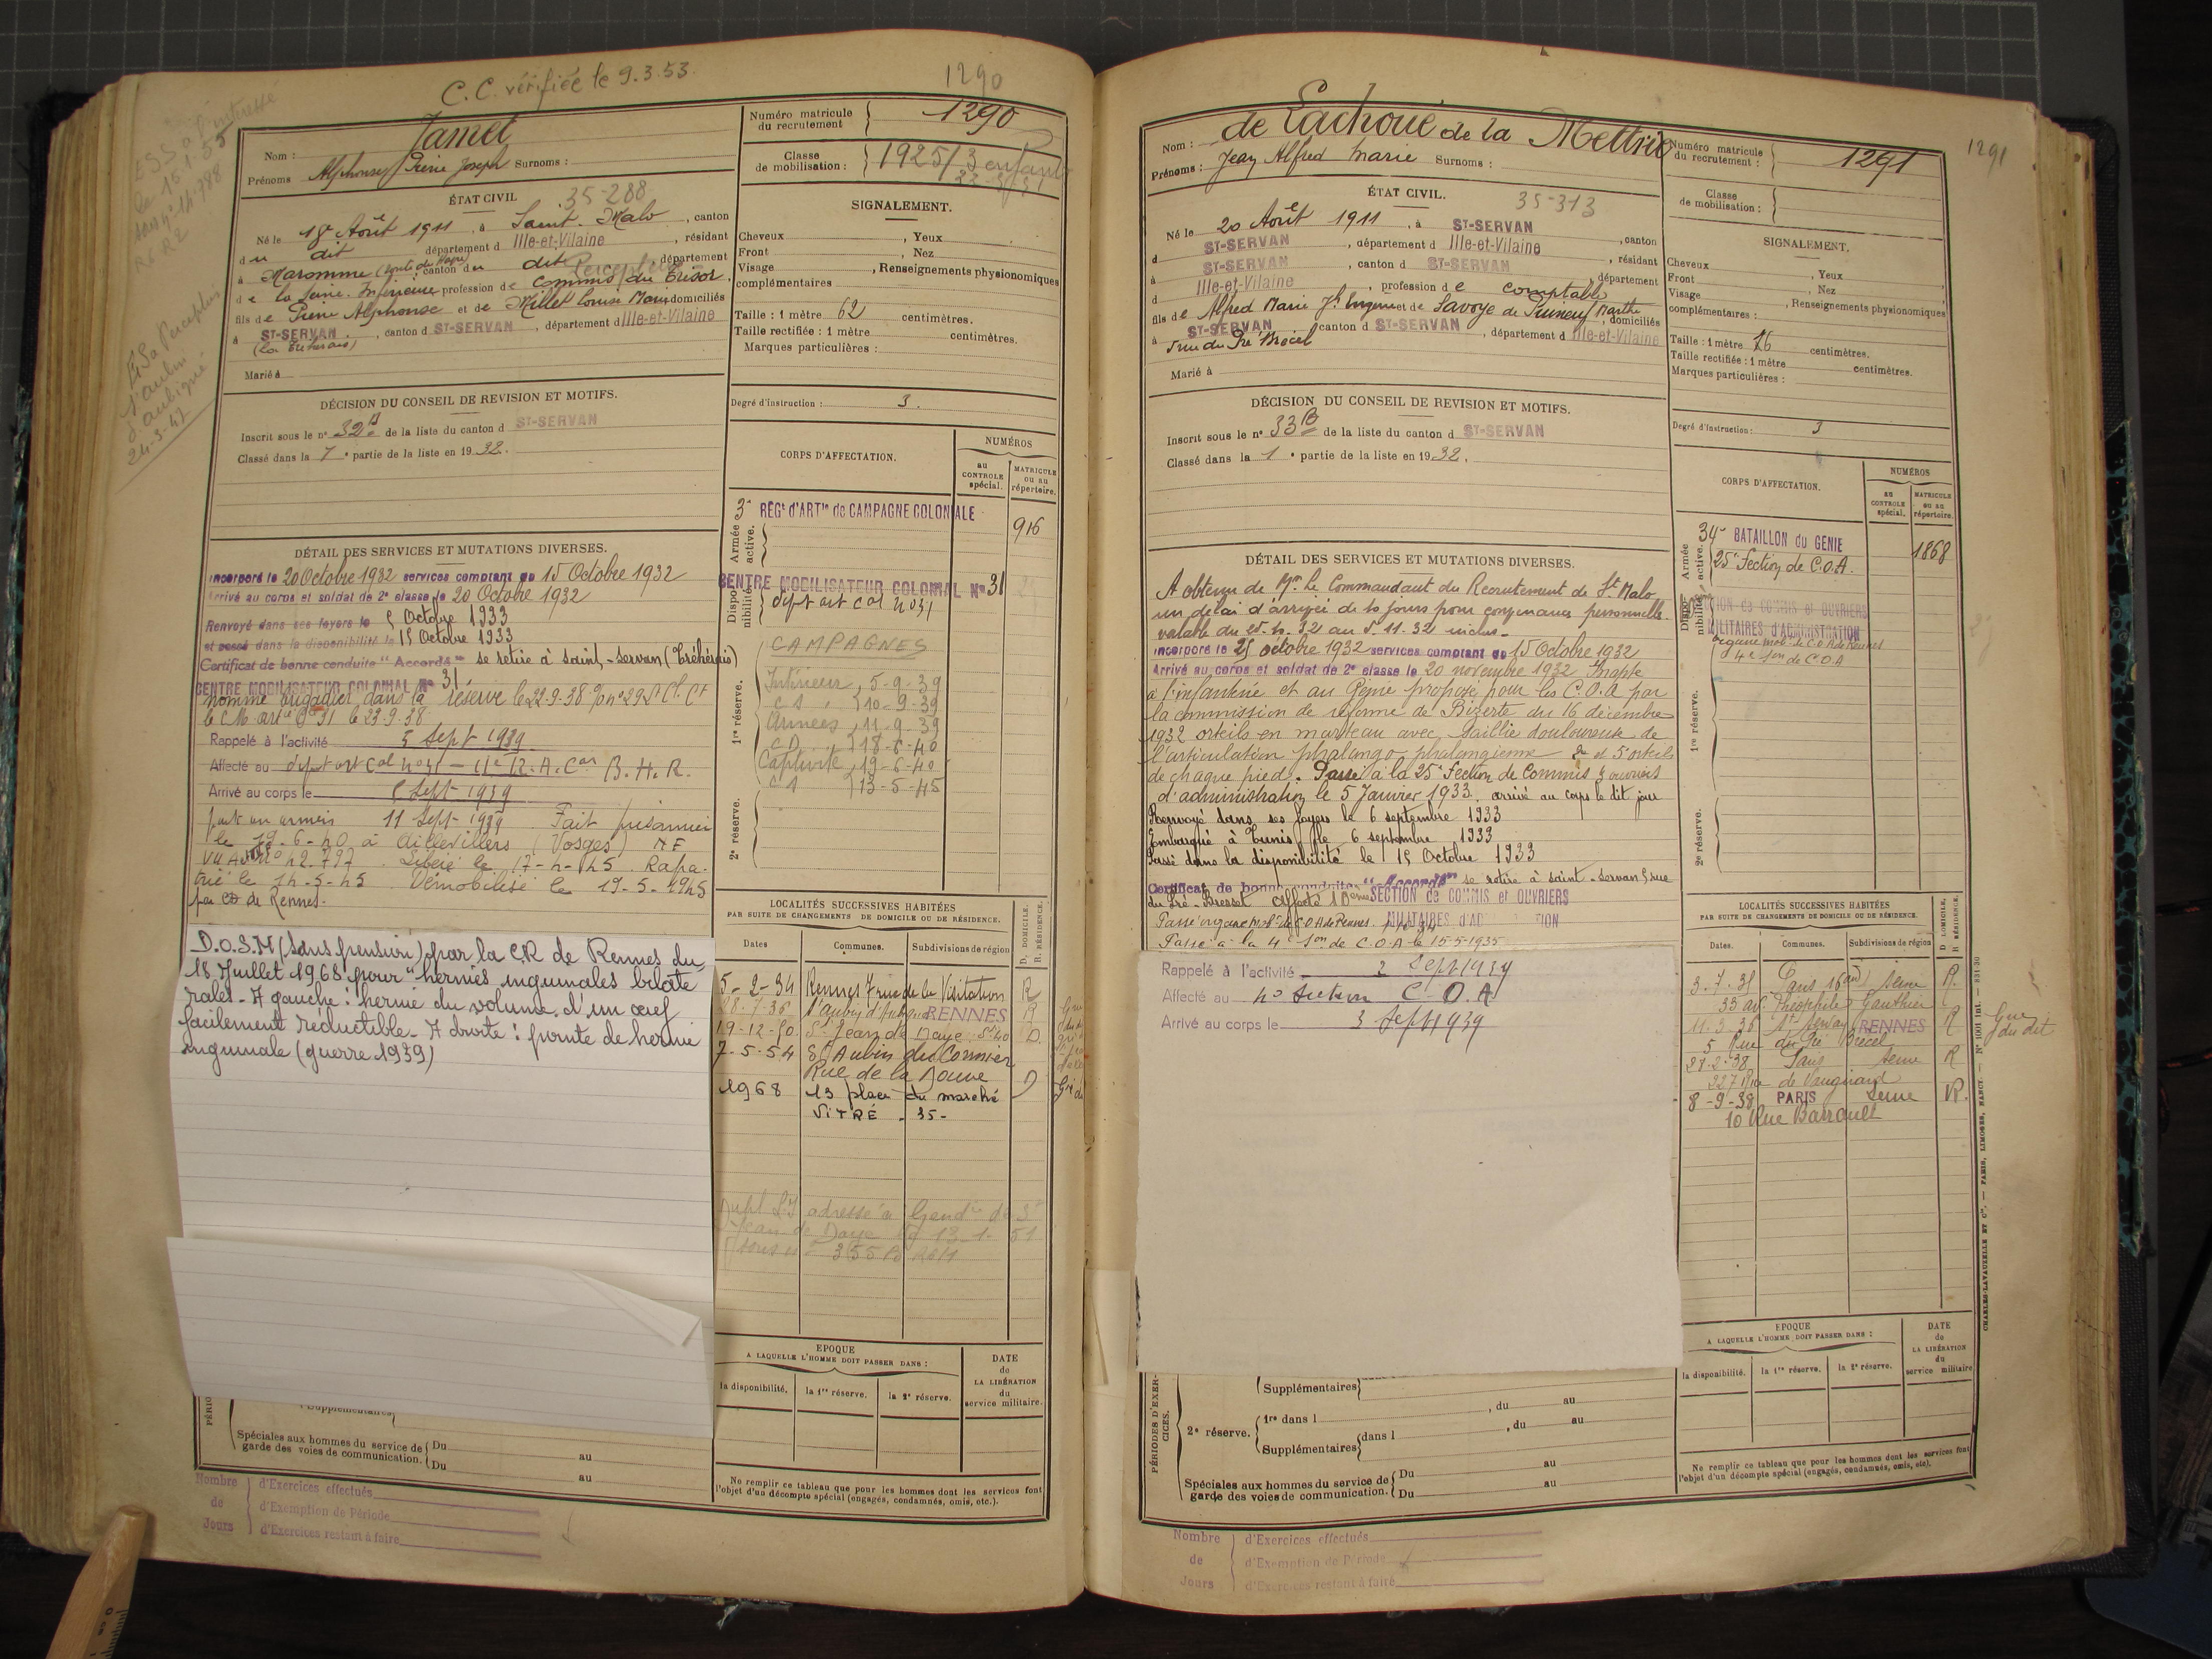 C.C. vérifiée le 9.3.53.
1290
Nom : Jamet
Prénoms Alphonse Pierre Joseph Surnoms :
Numéro matricule du recrutement 1290
Classe de mobilisation : 1925/3 enfants
ÉTAT CIVIL
35-288
Né le 18 Août 1911, à Saint-Malo, canton
du dit département d Ille-et-Vilaine, résidant
à Maromme canton du dit, département
de la Seine-Inférieure profession de commis du Trésor
fils de Pierre Alphonse et de Millet Louise Marie domiciliés
à ST-SERVAN, canton d ST-SERVAN, département d Ille-et-Vilaine
Marié à
SIGNALEMENT.
Cheveux , Yeux
Front , Nez
Visage , Renseignements physionomiques
complémentaires :
Taille : 1 mètre 62 centimètres.
Taille rectifiée : 1 mètre centimètres.
Marques particulières :
Degré d'instruction : 3.
DÉCISION DU CONSEIL DE REVISION ET MOTIFS.
Inscrit sous le n° 32 de la liste du canton d ST-SERVAN
Classé dans la partie de la liste en 1932.
CORPS D'AFFECTATION.
NUMÉROS
au CONTROLE spécial.
MATRICULE ou au répertoire.
Armée active.
3e RÉGt d'ARTie de CAMPAGNE COLONIALE
916
Disponibilité
CENTRE MOBILISATEUR COLONIAL N° 31
dépôt art col n°31
1re réserve.
CAMPAGNES
Intérieur, 5-9-39
CS 10-9-39
Armées, 11-9-39
18-6-40
Captivité, 19-6-40
13-5-45
2e réserve.
DÉTAIL DES SERVICES ET MUTATIONS DIVERSES.
Incorporé le 20 Octobre 1932 services comptant du 15 Octobre 1932
Arrivé au corps et soldat de 2e classe le 20 Octobre 1932
Renvoyé dans ses foyers le Octobre 1933
et passé dans la disponibilité le 15 Octobre 1933
Certificat de bonne conduite "Accordé" se retire à Saint-Servan
CENTRE MOBILISATEUR COLONIAL N° 31
nommé brigadier dans la réserve le 22-9-38
le 23-9-38
Rappelé à l'activité Sept 1939
Affecté au dépôt art Col n°31 - R.A.C. B.H.R.
Arrivé au corps le Sept 1939
part aux armées 11 Sept 1939 Fait prisonnier
le 19-6-40 à Aillevillers (Vosges)
Libéré le 17-4-45. Rapatrié
le 14-5-45. Démobilisé le 19-5-1945
par de Rennes.
D.O.S.M (sans pension) par la C.R de Rennes du
18 Juillet 1968 pour "hernies inguinales bilaté
rales - A gauche : hernie du volume d'un œuf
facilement réductible - A droite : pointe de hernie
inguinale (guerre 1939)
LOCALITÉS SUCCESSIVES HABITÉES
PAR SUITE DE CHANGEMENTS DE DOMICILE OU DE RÉSIDENCE.
Dates Communes. Subdivisions de région D. DOMICILE. R. RÉSIDENCE.
5-2-34 Rennes 7 rue de la Visitation R
28-7-36 St Aubin d'Aubigné RENNES R
19-12-50 St Jean de Daye St Lô D.
7-5-54 St Aubin du Cormier
Rue de la Douve D
1968 13 place du marché
VITRÉ - 35-
EPOQUE
A LAQUELLE L'HOMME DOIT PASSER DANS :
la disponibilité. la 1re réserve. la 2e réserve.
DATE de LA LIBÉRATION du service militaire.
Spéciales aux hommes du service de garde des voies de communication. Du au
Du au
Ne remplir ce tableau que pour les hommes dont les services font
l'objet d'un décompte spécial (engagés, condamnés, omis, etc.).
Nombre de Jours
d'Exercices effectués
d'Exemption de Période
d'Exercices restant à faire
1291
Nom : de Lachoue de la Mettrie
Prénoms : Jean Alfred Marie Surnoms :
Numéro matricule du recrutement : 1291
Classe de mobilisation :
ÉTAT CIVIL.
35-313
Né le 20 Août 1911, à ST-SERVAN
d ST-SERVAN, département d Ille-et-Vilaine, canton
à ST-SERVAN, canton d ST-SERVAN, résidant
d Ille-et-Vilaine, profession de comptable, département
fils de Alfred Marie Jh Eugène et de Savoye de Puineuf Marthe, domiciliés
à ST-SERVAN canton d ST-SERVAN, département d Ille-et-Vilaine
5 rue du Pré Brécel
Marié à
SIGNALEMENT.
Cheveux , Yeux
Front , Nez
Visage , Renseignements physionomiques
complémentaires :
Taille : 1 mètre 76 centimètres.
Taille rectifiée : 1 mètre centimètres.
Marques particulières :
Degré d'instruction : 3
DÉCISION DU CONSEIL DE REVISION ET MOTIFS.
Inscrit sous le n° 33 B de la liste du canton d ST-SERVAN
Classé dans la 1e partie de la liste en 1932.
CORPS D'AFFECTATION.
NUMÉROS
au CONTROLE spécial.
MATRICULE ou au répertoire.
Armée active.
34e BATAILLON du GENIE
1868
25e Section de C.O.A.
Disponibilité
SECTION de COMMIS et OUVRIERS
MILITAIRES d'ADMINISTRATION
organe mob. de C.O.A de Rennes
4e Son de C.O.A
1re réserve.
2e réserve.
DÉTAIL DES SERVICES ET MUTATIONS DIVERSES.
A obtenu de Mr le Commandant du Recrutement de St Malo
un délai d'arrivée de 10 jours pour convenance personnelle
valable du 25-10-32 au 5-11-32 inclus.
Incorporé le 25 octobre 1932 services comptant du 15 Octobre 1932
Arrivé au corps et soldat de 2e classe le 20 novembre 1932 Inapte
à l'infanterie et au Génie proposé pour les C.O.A par
la commission de réforme de Bizerte du 16 décembre
1932 orteils en marteau avec saillie douloureuse de
l'articulation phalango-phalangienne 2e et 5e orteils
de chaque pied. Passé à la 25e Section de Commis & ouvriers
d'administration le 5 Janvier 1933. arrivé au corps le dit jour
Renvoyé dans ses foyers le 6 septembre 1933
Embarqué à Tunis le 6 septembre 1933
Passé dans la disponibilité le 15 Octobre 1933
Certificat de bonne conduite "Accordé" se retire à saint-servan 5 rue
du Pré-Bresset affecté 10ème SECTION de COMMIS et OUVRIERS
Passé organe mob. de C.O.A de Rennes MILITAIRES d'AD TION
Passé à la 4e Son de C.O.A le 15-5-1935
Rappelé à l'activité 2 Sept 1939
Affecté au 4e section C.O.A
Arrivé au corps le 3 Sept 1939
LOCALITÉS SUCCESSIVES HABITÉES
PAR SUITE DE CHANGEMENTS DE DOMICILE OU DE RÉSIDENCE.
Dates. Communes. Subdivisions de région D. DOMICILE. R. RÉSIDENCE.
3-7-35 Paris 16e Seine R.
33 av. Théophile Gauthier
11-3-36 St Servan RENNES R
5 Rue du Pré Brécel
27-2-38 Paris Seine R
227 Rue de Vaugirard
8-9-38 PARIS Seine R.
10 Rue Barrault
PÉRIODES D'EXERCICES.
Supplémentaires
2e réserve. 1re dans l , du au
Supplémentaires dans l , du au
Spéciales aux hommes du service de garde des voies de communication. Du au
Du au
EPOQUE
A LAQUELLE L'HOMME DOIT PASSER DANS :
la disponibilité. la 1re réserve. la 2e réserve.
DATE de LA LIBÉRATION du service militaire
Ne remplir ce tableau que pour les hommes dont les services font
l'objet d'un décompte spécial (engagés, condamnés, omis, etc).
CHARLES-LAVAUZELLE ET Cie. — PARIS, LIMOGES, NANCY.
Nombre de Jours
d'Exercices effectués
d'Exemption de Période
d'Exercices restant à faire